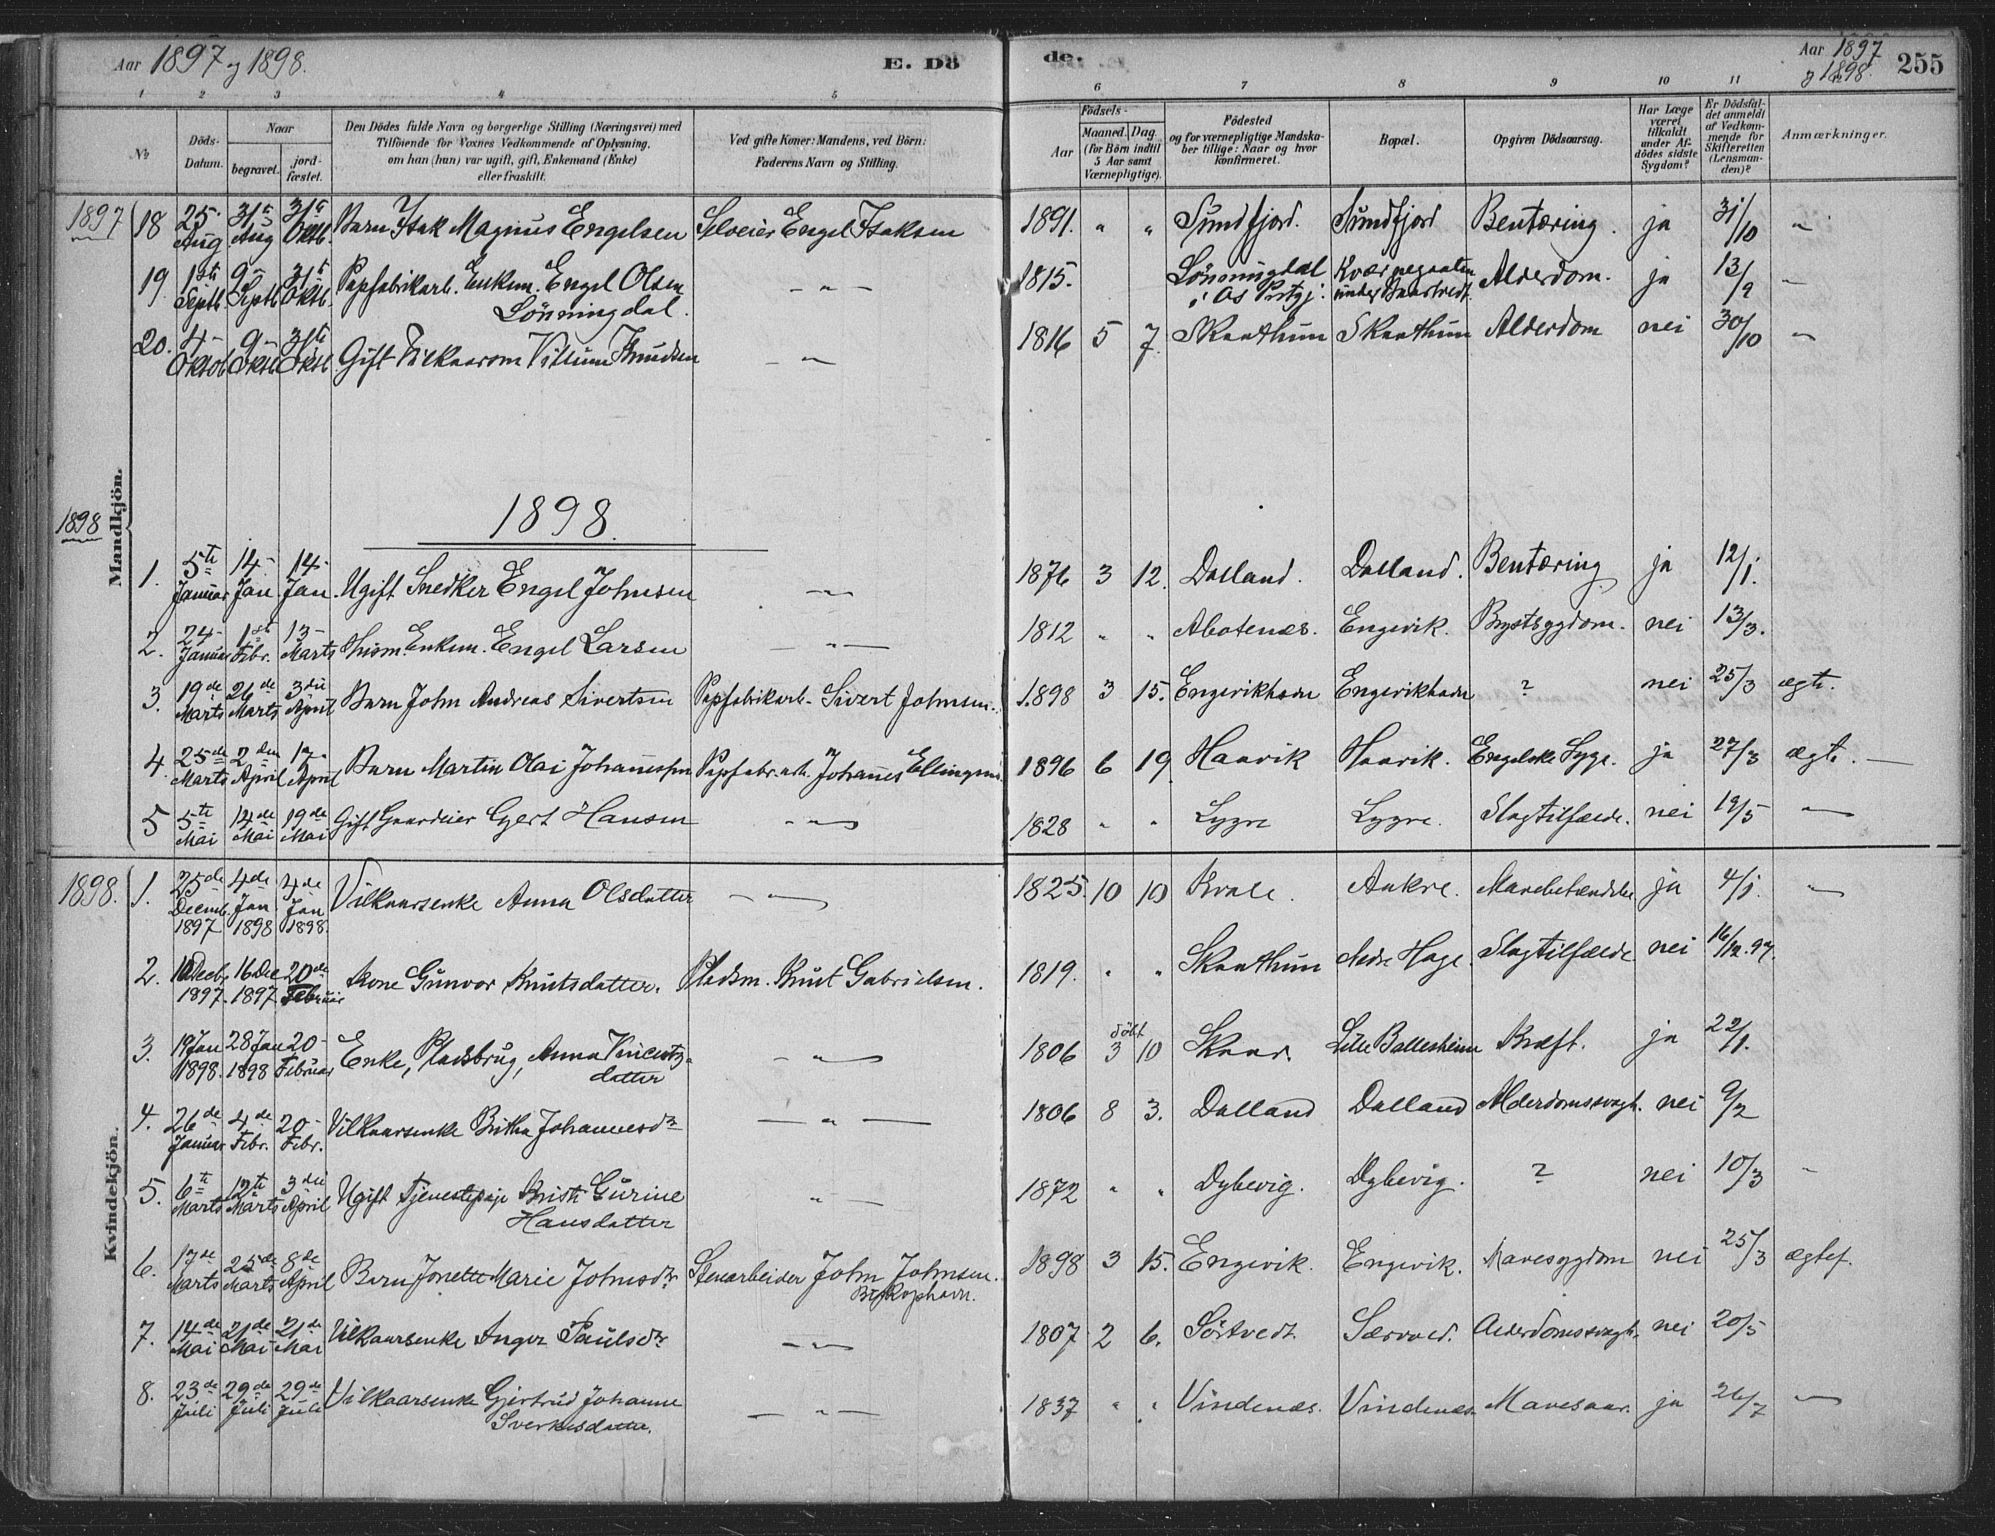 Aar 1897 og 1898.
E. Dö
de.
Aar 1897
og 1898.
255
1 2 3 4 5 6 7 8 9 10 11
No
Döds-
Datum.
Naar
begravet.
jord-
fæstet.
Den Dödes fulde Navn og borgerlige Stilling (Næringsvei) med
Tilföiende for Voxnes Vedkommende af Oplysning,
om han (hun) var ugift, gift, Enkemand (Enke)
eller fraskilt.
Ved gifte Koner: Mandens, ved Börn:
Faderens Navn og Stilling.
Födsels-
Aar
Maaned.
Dag
(for Börn indtil
5 Aar samt
Værnepligtige).
Födested
og for værnepligtige Mandska-
ber tillige: Naar og hvor
konfirmeret.
Bopæl.
Opgiven Dödsaarsag.
Har Læge
været
tilkaldt
under Af-
dödes sidste
Sygdom?
Er Dödsfal-
det anmeldt
af Vedkom-
mende for
Skifteretten
(Lensman-
den)?
Anmærkninger.
Mandkjön.
1897 18 25 Aug 31te Aug 31te Oktb. Barn Isak Magnus Engelsen Selveier Engel Isaksen 1891. " " Sundfjord. Sundfjord Bentæring. ja 31/10 "
19 1ste Septb. 9- Septb. 31te Oktb. Papfabrikarb. Enkem. Engel Olsen
Lönningdal. - " - 1815. Lönningdal
i Os Prstgj. Kværnegaaten
under Alderdom. ja 13/9 "
20. 4- Oktob. 9- Oktb. 31te Oktb. Gift Vilkaarsm Villum Knudsen - " - 1816 5 7. Skaathun Skaathun Alderdom nei 30/10 "
1898
1898.
1. 5te Januar 14- Jan 14- Jan. Ugift Snedker Engel Johnsen - " - 1876 3 12. Dalland. Dalland. Bentæring ja 12/1.
2. 24- Januar 1ste Febr. 13- Marts Huusm Enkem. Engel Larsen - " - 1812 " " Abotenæs. Engevik. Brystsygdom. nei 13/3.
3. 19de Marts 26de Marts 3die April Barn John Andreas Sivertsen Papfabrikarb. Sivert Johnsen. 1898 3 15. Engevikhavn Engevikhavn ? nei 25/3 ægte.
4. 25de Marts 2den April 17- April Barn Martin Olai Johannessen Papfabr.arb. Johannes Ellingsen 1896 6 19 Haavik Haavik. Engelske Syge. ja 27/3 ægte.
5 5te Mai 14de Mai 19de Mai Gift Gaardeier Gjert Hansen - " - 1828 " " Lygre Lygre. Slagtilfælde. nei 19/5 "
Kvindekjön.
1898. 1. 25de Decemb. 1897 4de Jan 1898 4de Jan 1898. Vilkaarsenke Anna Olsdatter - " - 1825. 10 10 Kvale. Aakre. Mavebetændelse ja 4/1. "
2. 10 Decb. 1897. 16 Dec 1897 20de Februar Kone Gunvor Knutsdatter. Pladsm. Knut Gabrielsen. 1819. " " Skaathun Nedre Hage. Slagtilfælde nei 16/12.97.
3. 19 Jan 1898. 28 Jan 1898 20- Februar Enke, Pladsbrug, Anna Vincentz-
datter - " - 1806 döbt 3 10 Skaar. Lille Ballesheim Kræft. ja 22/1.
4. 26de Januar 4de Febr. 20- Febr. Vilkaarsenke Britha Johannesdr - " - 1806 8 3. Dalland Dalland Alderdomssvagh. nei 9/2
5. 6te Marts 12te Marts 3die April Ugift Tjenestepige Gurine
Hansdatter " 1872 " " Dybevig. Dybevig. ? nei 10/3
6. 17de Marts 25de Marts 8de April Barn Jonette Marie Johnsdr Stenarbeider John Johnsen.
Bispkophavn. 1898 3 15. Engevik. Engevik. Mavesygdom nei 25/3 ægtef.
7. 14de Mai 21de Mai 21de Mai Vilkaarsenke Inger Paulsdr - " - 1807 2 6. Sörtvedt Særvold. Alderdomssvagh. nei 20/5
8. 23de Juli 29de Juli 29de Juli Vilkaarsenke Gjertrud Johanne
Sverkesdatter. - " - 1837 " " Vindenæs. Vindenæs. Mavesaar. ja 26/7 "